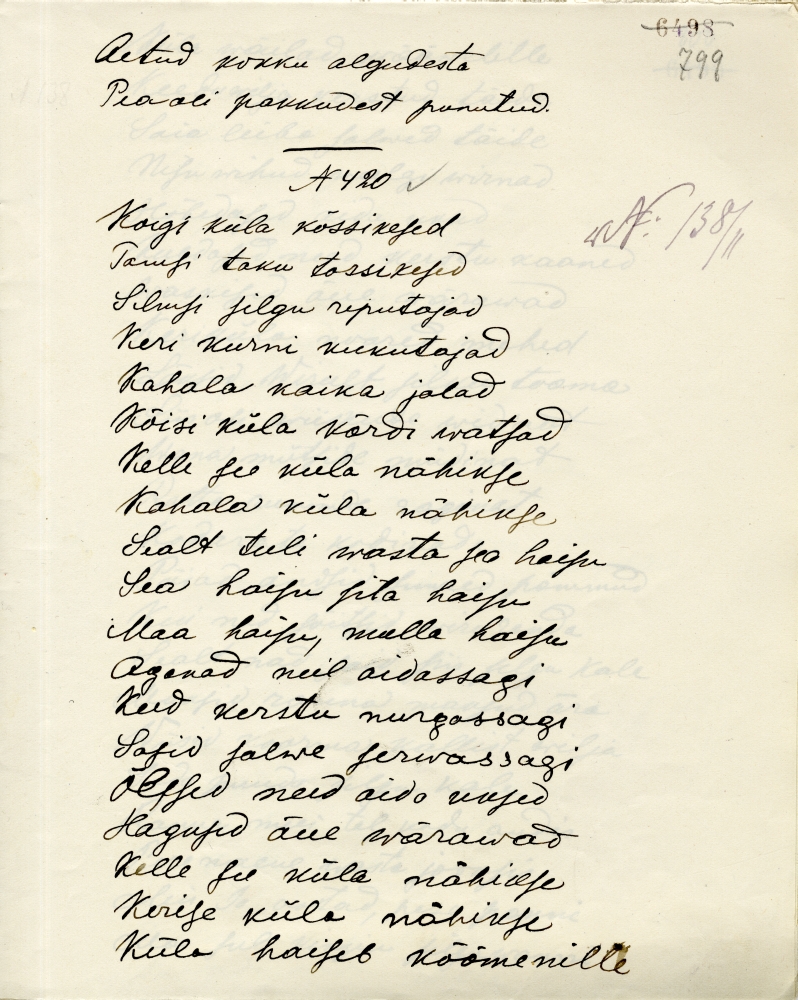 6498
799
Aetud kokku algudesta
Pea oli pakkudest punutud.
N 420 ✓
Koigi küla kössikesed
Tamsi taku tossikesed
Silmsi silgu reputajad
Keri kurni kukutajad
Kahala kaika jalad
Kõisi küla kördi watsad
Kelle see küla nähikse
Kahala küla nähikse
Sealt tuli wasta sea haisu
Sea haisu sita haisu
Maa haisu, mulla haisu
Aganad neil aidassagi
Keed kerstu nurgassagi
Sasid salwe serwassagi
Õlssed need aida uksed
Hagused äue wärawad
Kelle see küla nähikse
Kerise küla nähikse
Küla haiseb köömenille
N: 138/11